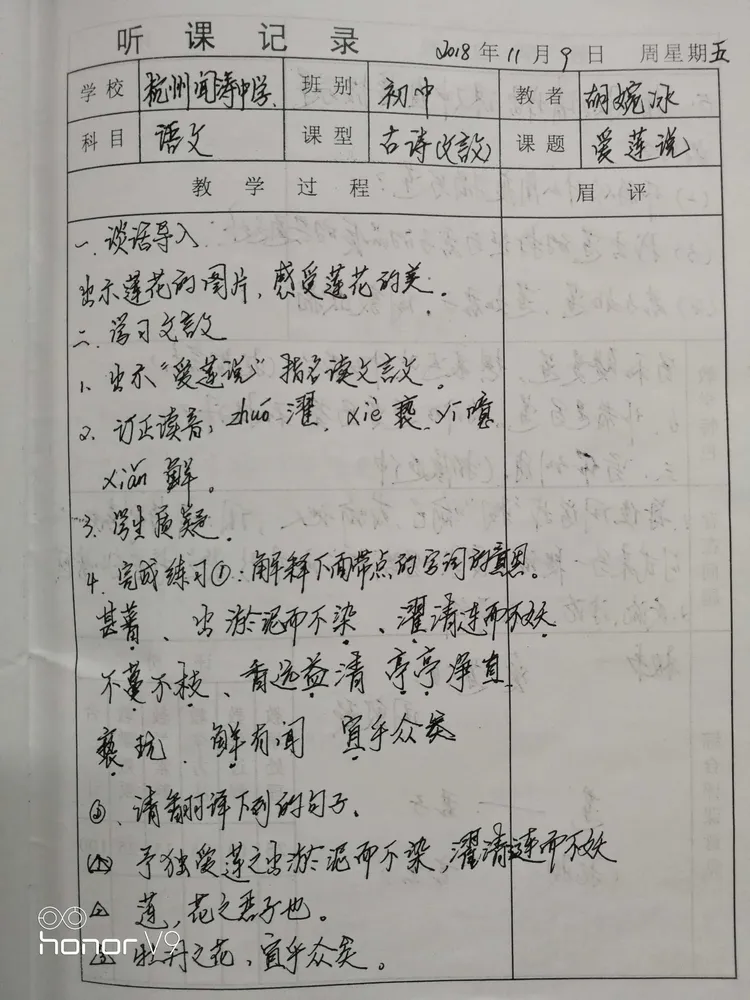 听课记录
2018年11月9日 周星期五
学校 杭州闻涛中学 班别 初中 教者 胡婉冰
科目 语文 课型 古诗(文言文) 课题 爱莲说
教学过程 眉评
一. 谈话导入
出示莲花的图片，感受莲花的美。
二. 学习文言文
1. 出示“爱莲说”指名读文言文。
2. 订正读音：zhuó 濯、xiè 亵、yì 噫
xiǎn 鲜。
3. 学生质疑.
4. 完成练习①：解释下面带点的字词的意思。
甚蕃、出淤泥而不染、濯清涟而不妖
不蔓不枝、香远益清 亭亭净直
亵玩、鲜有闻 宜乎众矣
②、请翻译下列的句子.
⚠ 予独爱莲之出淤泥而不染，濯清涟而不妖
莲，花之君子也。
牡丹之花，宜乎众矣。
honor V9